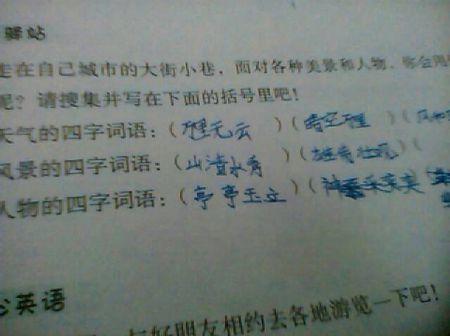 驿站
走在自己城市的大街小巷，面对各种美景和人物，你会用
呢？请搜集并写在下面的括号里吧！
天气的四字词语：（ ）（ ）（风和
风景的四字词语：（山清水秀 ）（ ）（
人物的四字词语：（亭亭玉立 ）（神采奕奕
心英语
与好朋友相约去各地游览一下吧！